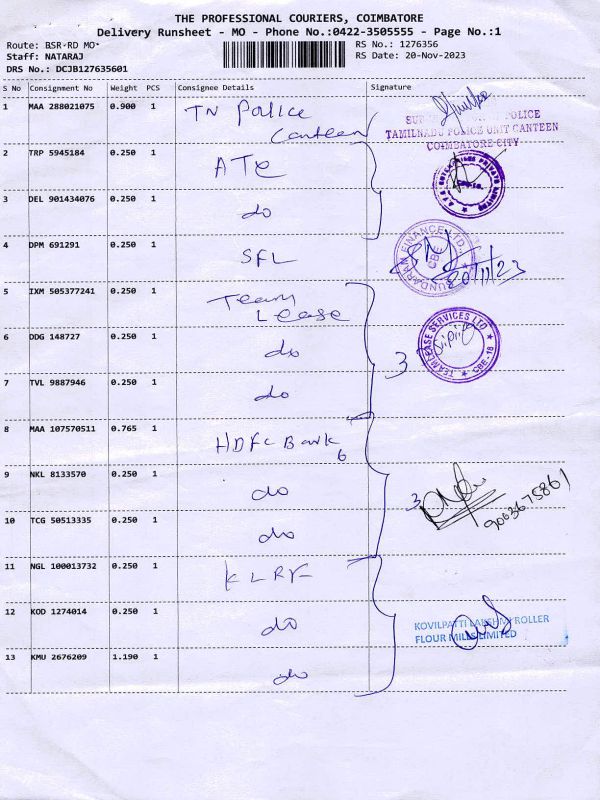 THE PROFESSIONAL COURIERS, COIMBATORE
Delivery Runsheet - MO - Phone No.:0422-3505555 - Page No.:1
Route: BSR-RD MO
Staff: NATARAJ
DRS No.: DCJB127635601
RS No.: 1276356
RS Date: 20-Nov-2023
S No Consignment No Weight PCS Consignee Details Signature
1 MAA 288021075 0.900 1 TN Police
Canteen
POLICE
TAMILNADU POLICE UNIT CANTEEN
COIMBATORE-CITY
2 TRP 5945184 0.250 1 ATE
3 DEL 901434076 0.250 1 do
4 DPM 691291 0.250 1 SFL
SUNDARAM FINANCE LTD.
CBE
20/11/23
5 IXM 505377241 0.250 1 Team
Lease
TEAMLEASE SERVICES LTD
CBE-18
6 DDG 148727 0.250 1 do
3
7 TVL 9887946 0.250 1 do
8 MAA 107570511 0.765 1 HDFC Bank
6
9 NKL 8133570 0.250 1 do
3
9003675861
10 TCG 50513335 0.250 1 do
11 NGL 100013732 0.250 1 KLRF
12 KOD 1274014 0.250 1 do
KOVILPATTI LAKSHMI ROLLER
FLOUR MILLS LIMITED
13 KMU 2676209 1.190 1 do